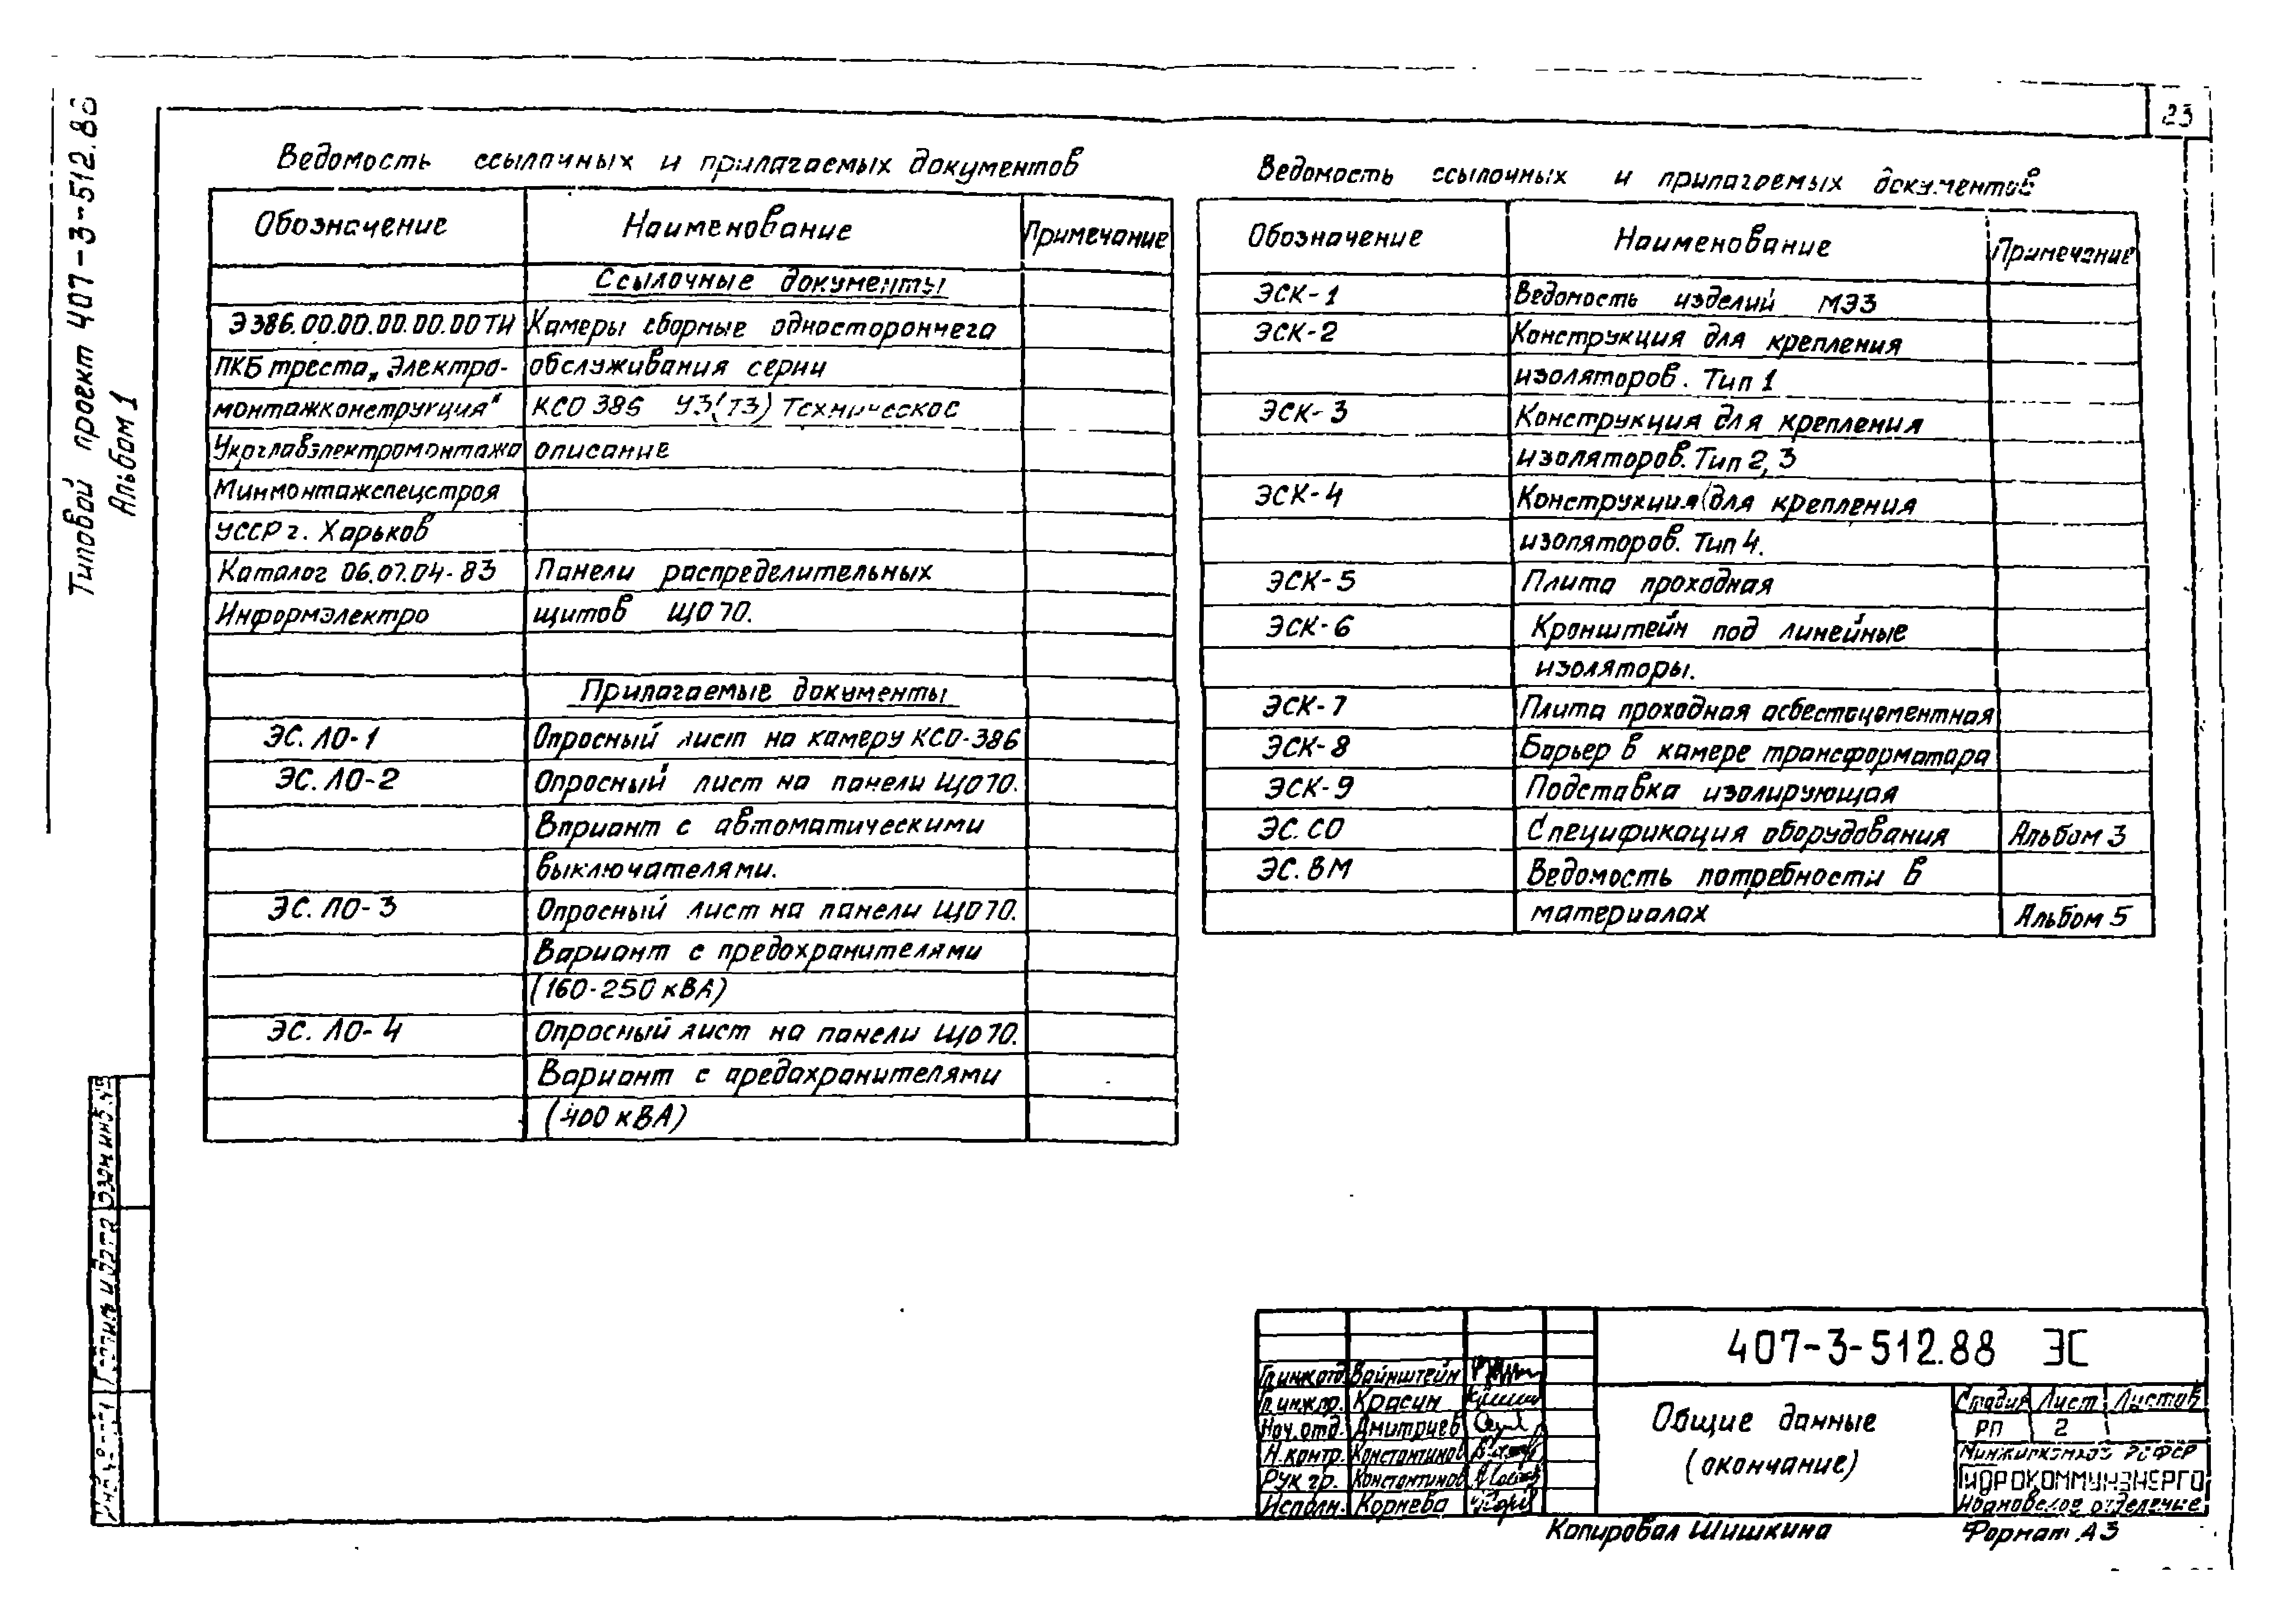 23
Типовой проект 407-3-512.88
Альбом 1
Ведомость ссылочных и прилагаемых документов
Обозначение Наименование Примечание
Ссылочные документы
Э386.00.00.00.00.00ТИ Камеры сборные одностороннего
ПКБ треста „Электро- обслуживания серии
монтажконструкция" КСО 386 У3(Т3) Техническое
Укрглавэлектромонтажа описание
Минмонтажспецстроя
УССР г. Харьков
Каталог 06.07.04-83 Панели распределительных
Информэлектро щитов ЩО70.
Прилагаемые документы
ЭС. ЛО-1 Опросный лист на камеру КСО-386
ЭС. ЛО-2 Опросный лист на панели ЩО70.
Вариант с автоматическими
выключателями.
ЭС. ЛО-3 Опросный лист на панели ЩО70.
Вариант с предохранителями
(160-250 кВА)
ЭС. ЛО-4 Опросный лист на панели ЩО70.
Вариант с предохранителями
(400 кВА)
Ведомость ссылочных и прилагаемых документов
Обозначение Наименование Примечание
ЭСК-1 Ведомость изделий МЭЗ
ЭСК-2 Конструкция для крепления
изоляторов. Тип 1
ЭСК-3 Конструкция для крепления
изоляторов. Тип 2, 3
ЭСК-4 Конструкция для крепления
изоляторов. Тип 4.
ЭСК-5 Плита проходная
ЭСК-6 Кронштейн под линейные
изоляторы.
ЭСК-7 Плита проходная асбестоцементная
ЭСК-8 Барьер в камере трансформатора
ЭСК-9 Подставка изолирующая
ЭС. СО Спецификация оборудования Альбом 3
ЭС. ВМ Ведомость потребности в
материалах Альбом 5
407-3-512.88 ЭС
Гл.инж.отд. Вайнштейн
Гл.инж.пр. Красин
Нач.отд. Дмитриев
Н.контр. Константинов
Рук гр. Константинов
Исполн. Корнева
Общие данные
(окончание)
Стадия Лист Листов
РП 2
Минжилкомхоз РСФСР
ГИПРОКОММУНЭНЕРГО
Ивановское отделение
Копировал Шишкина Формат А3
Подпись и дата
Взам инв. №